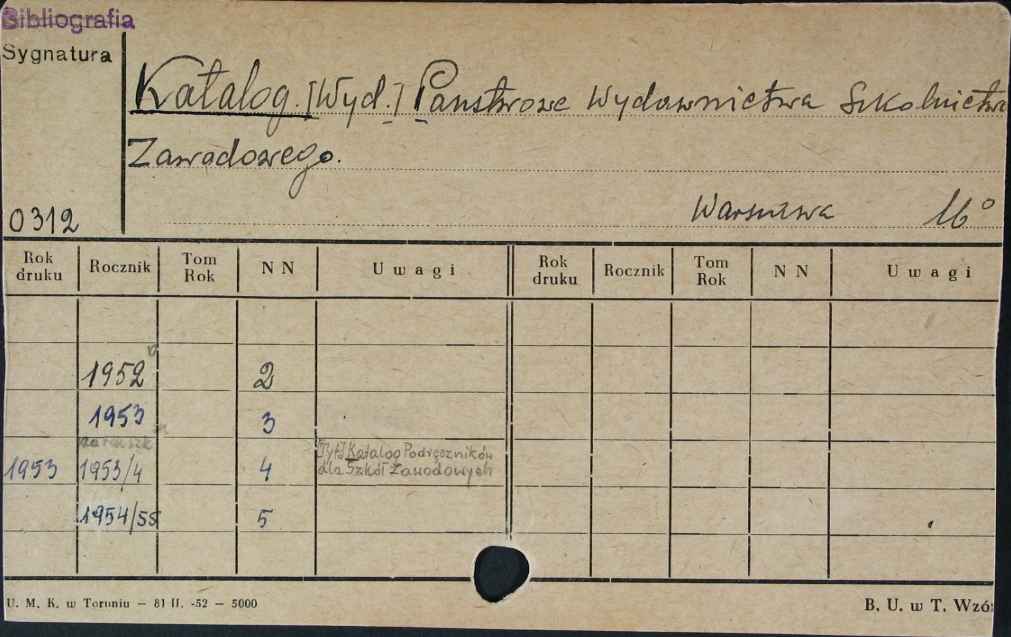 Bibliografia
Sygnatura
Katalog. [Wyd.] Państwowe Wydawnictwa Szkolnictwa
Zawodowego.
0312 Warszawa 16°
Rok druku Rocznik Tom Rok N N Uwagi Rok druku Rocznik Tom Rok N N Uwagi
1952 2
1953 3
1953 1953/4 4 [Tyt.] Katalog Podręczników
dla Szkół Zawodowych
1954/55 5
U. M. K. w Toruniu — 81 II. -52 — 5000 B. U. w T. Wzór